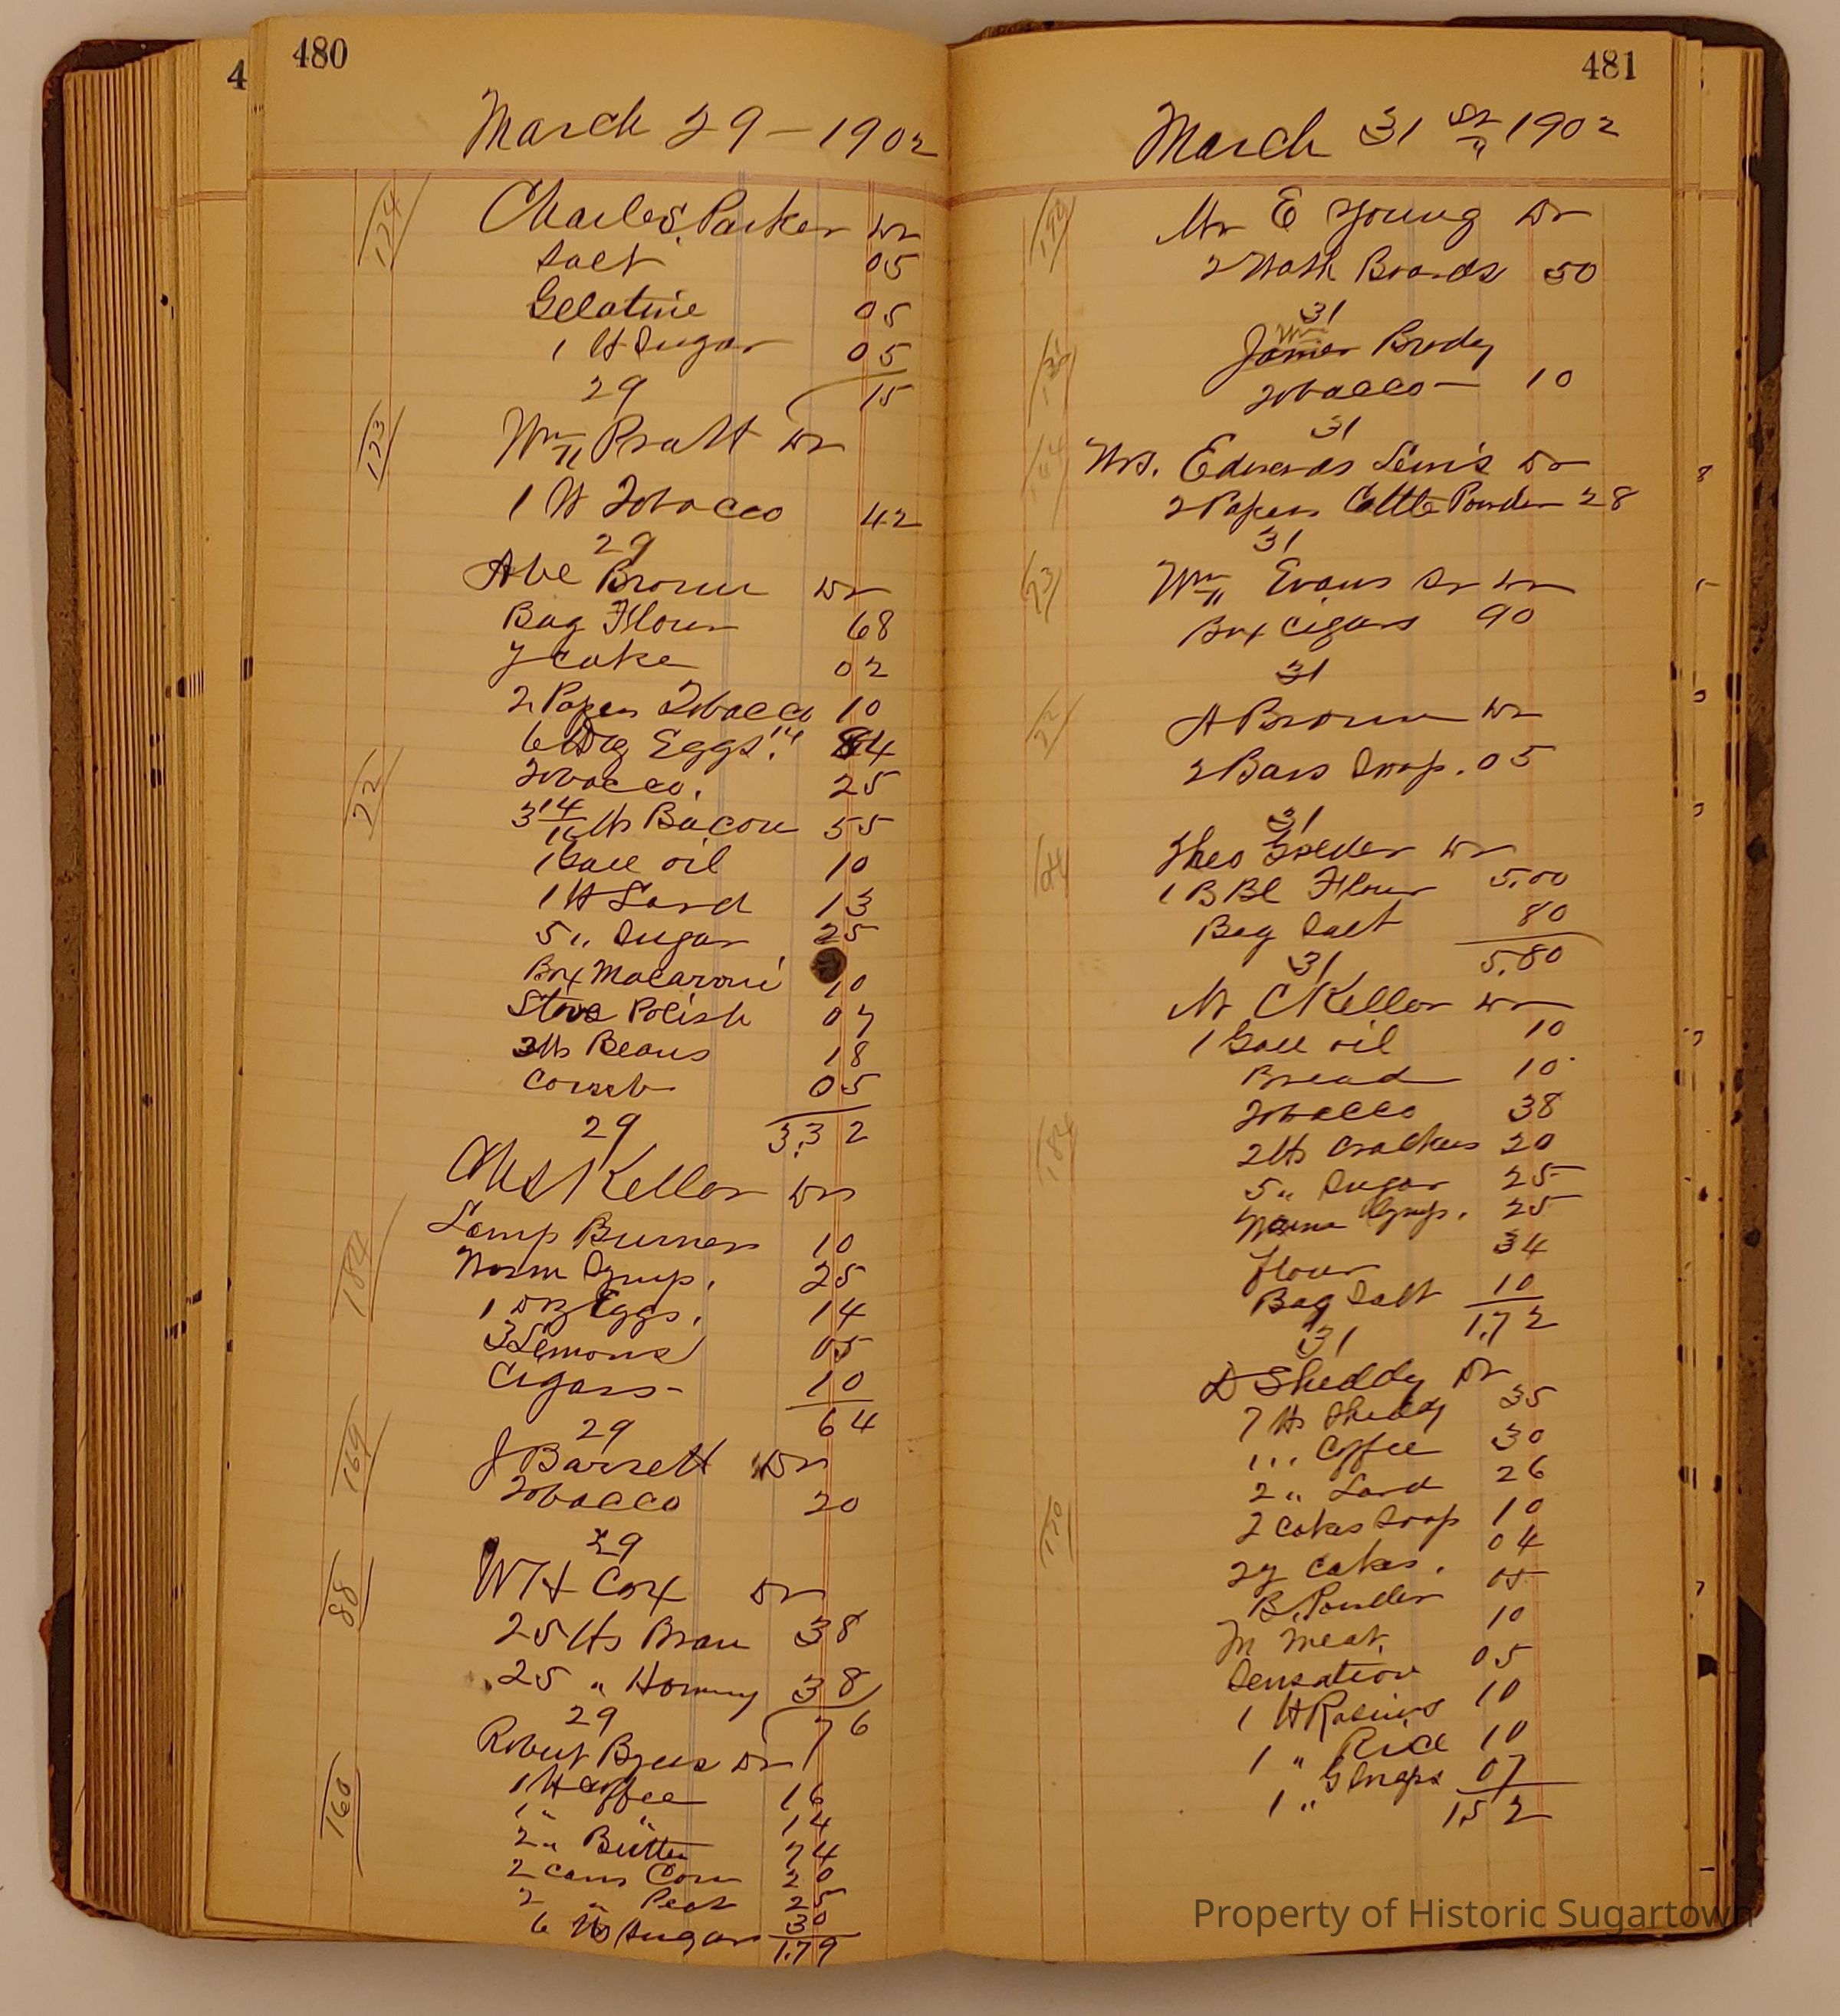 480
4
March 29 - 1902
124
Charles Parker Dr
Salt 05
Gelatine 05
1 lb Sugar 05
29 15
123
Wm Pratt Dr
1 lb Tobacco 42
29
Abe Brown Dr
Bag Flour 68
Y Cake 02
2 Papers Tobacco 10
6 Doz Eggs. 14 84
22
Tobacco. 25
3 14/16 lbs Bacon 55
1 Gall oil 10
1 lb Lard 13
5 " Sugar 25
Box Macaroni 10
Stove Polish 07
3 lbs Beans 18
05
29 3.32
Keller Dr
Lamp Burner 10
184
Worm Syrup. 25
1 Doz Eggs. 14
3 Lemons 05
Cigars - 10
29 64
169
J Barrett Dr
Tobacco 20
29
88
W H Cox Dr
25 lbs Bran 38
25 " Hominy 38
29 76
Robert Byers Dr
160
1 lb Coffee 16
1 " " 14
2 " Butter 74
2 cans Corn 20
2 " Peas 25
6 lbs Sugar 30
1.79
481
March 31 st 1902
190
Mr E Young Dr
2 Wash Boards 50
31
Wm
James Brody
Tobacco - 10
31
Mrs. Edwards Lewis Dr
2 Papers Cattle Powder 28
31
23
Wm Evans Sr Dr
Box Cigars 90
31
22
A Brown Dr
2 Bars Soap. 05
31
Theo Dr
1 BBl Flour 5.00
Bag Salt 80
31 5.80
Mr C Keller Dr
1 Gall oil 10
Bread 10
Tobacco 38
184
2 lbs Crackers 20
5 " Sugar 25
Worm Syrup. 25
Flour 34
Bag Salt 10
31 1.72
D Sheddy Dr
7 lbs 35
1 " Coffee 30
2 " Lard 26
170
2 Cakes Soap 10
2 Y Cakes. 04
B. Powder 05
M Meat. 10
Sensation 05
1 lb Rasins 10
1 " Rice 10
1 " G Snaps 07
1.52
Property of Historic Sugartown